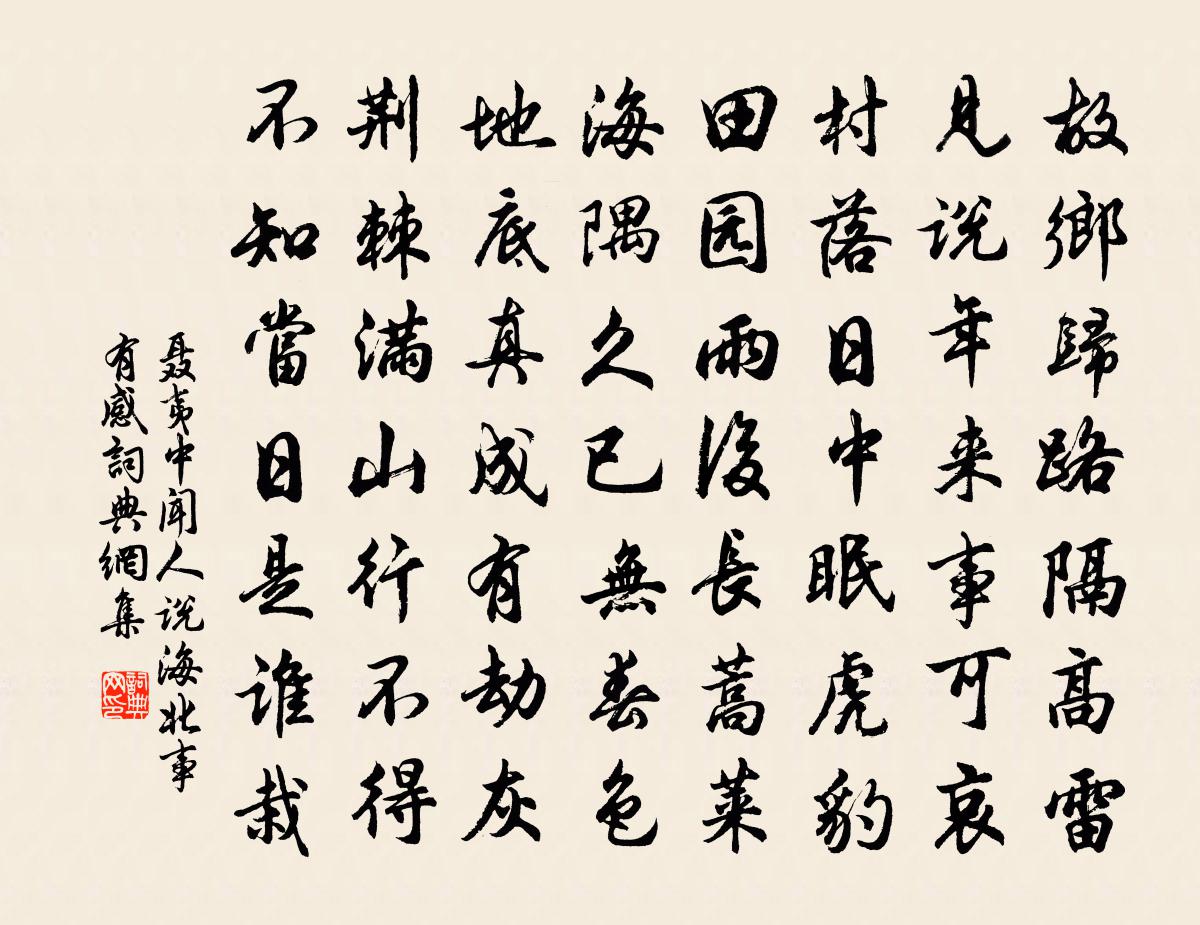 故鄉歸路隔高雷
見说年来事可哀
村落日中眠虎豹
田园雨後長蒿莱
海隅久已無春色
地底真成有劫灰
荆棘满山行不得
不知當日是谁栽
聂夷中闻人说海北事
有感詞典網集
詞典
网印